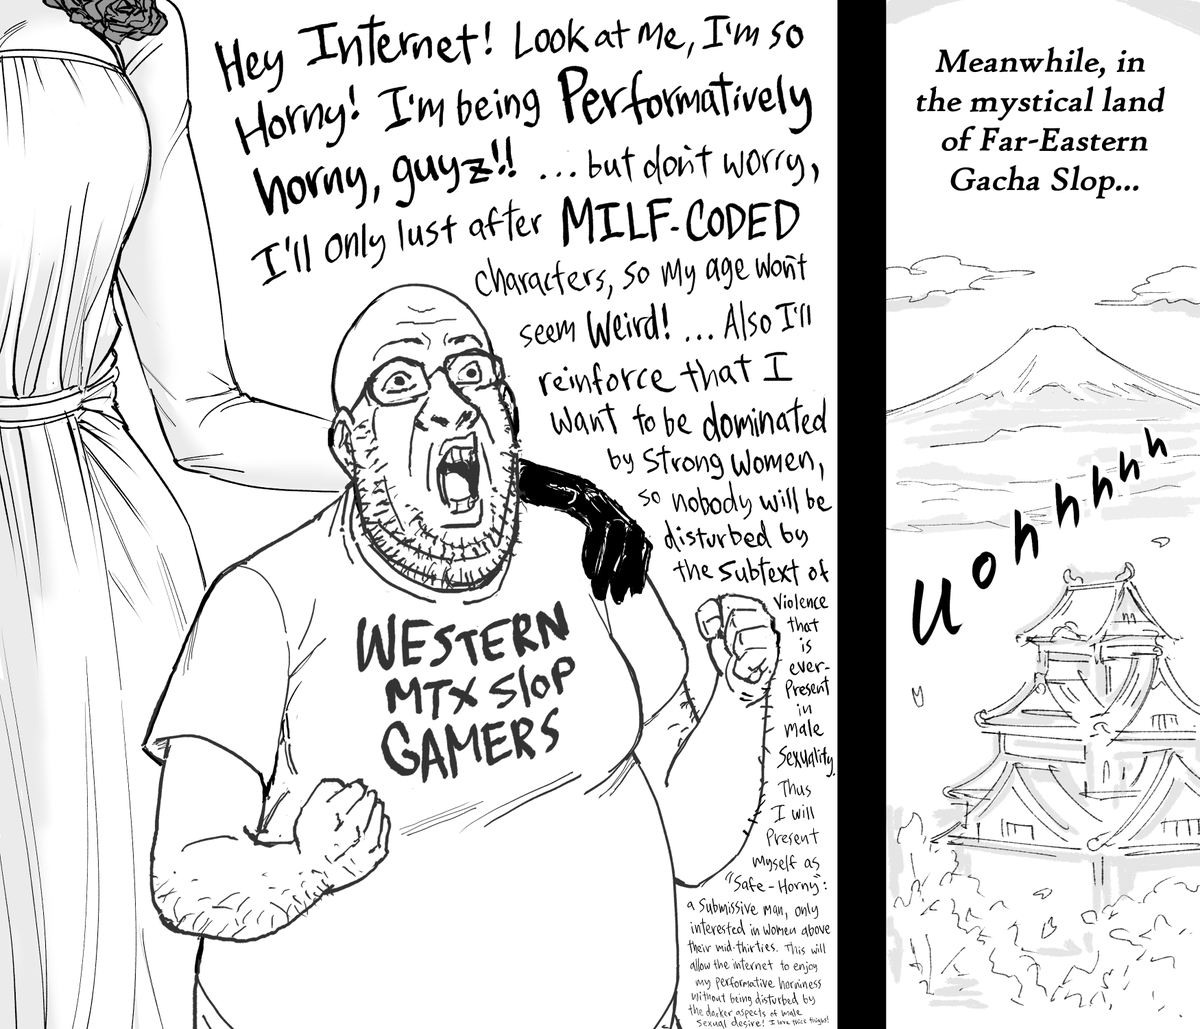 Hey Internet! Look at me, I'm so
Horny! I'm being Performatively
horny, guyz!! ...but don't worry,
I'll only lust after MILF-CODED
characters, so my age won't
seem Weird! ... Also I'll
reinforce that I
want to be dominated
by strong women,
so nobody will be
disturbed by
the subtext of
Violence
that
is
ever-
Present
in
male
Sexuality.
Thus
I will
Present
myself as
"Safe-Horny":
a submissive man, only
interested in women above
their mid-thirties. This will
allow the internet to enjoy
my performative horniness
without being disturbed by
the darker aspects of male
sexual desire! I love thicc thighs!
WESTERN
MTX Slop
GAMERS
Meanwhile, in
the mystical land
of Far-Eastern
Gacha Slop...
Uohhhhh